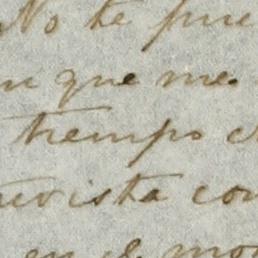 No te pue
que me
tiempo
vista con
en el mo